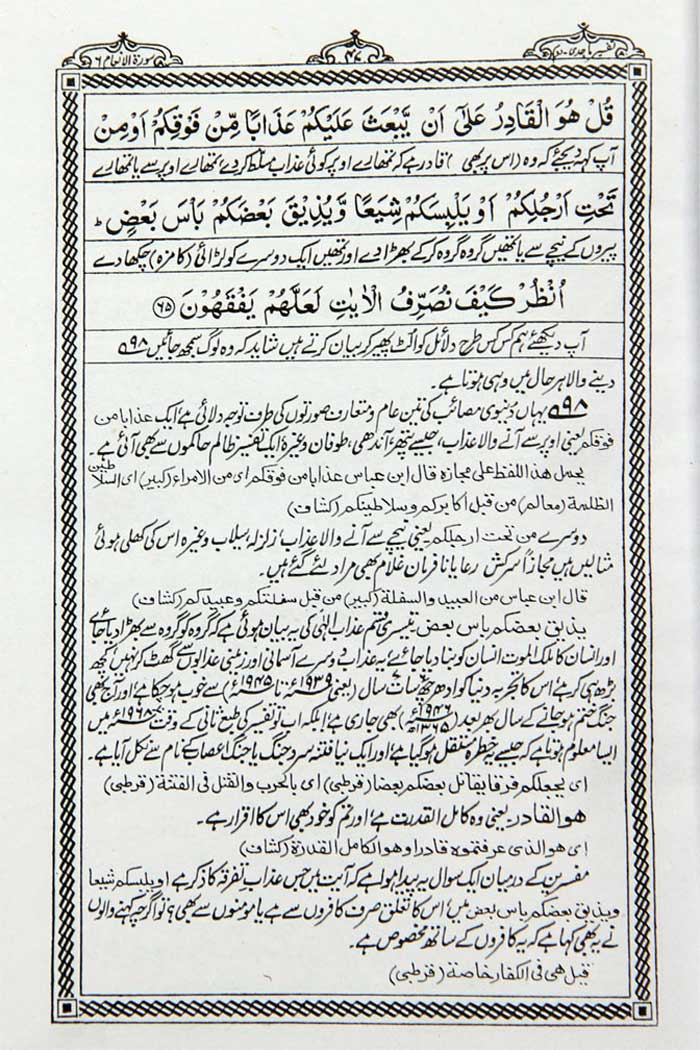 تفسیر ماجدی۔ دوم
۴۷
سورة الانعام ۶
قُلْ هُوَ الْقَادِرُ عَلٰٓى اَنْ يَّبْعَثَ عَلَيْكُمْ عَذَابًا مِّنْ فَوْقِكُمْ اَوْ مِنْ
آپ کہہ دیجئے کہ وہ (اس پر بھی) قادر ہے کہ تمہارے اوپر کوئی عذاب مسلط کر دے تمہارے اوپر سے یا تمہارے
تَحْتِ اَرْجُلِكُمْ اَوْ يَلْبِسَكُمْ شِيَعًا وَّيُذِيْقَ بَعْضَكُمْ بَاْسَ بَعْضٍ ؕ
پیروں کے نیچے سے یا تمہیں گروہ گروہ کر کے بھڑا دے اور تمہیں ایک دوسرے کو لڑائی (کا مزہ) چکھا دے
اُنْظُرْ كَيْفَ نُصَرِّفُ الْاٰيٰتِ لَعَلَّهُمْ يَفْقَهُوْنَ ﴿۶۵﴾
آپ دیکھئے ہم کس کس طرح دلائل کو الٹ پھیر کر بیان کرتے ہیں شاید کہ وہ لوگ سمجھ جائیں ۹۸
دینے والا ہر حال میں وہی ہوتا ہے۔
۹۸ یہاں دنیوی مصائب کی تین عام و متعارف صورتوں کی طرف توجہ دلائی ہے ایک عذابا من
فوقکم یعنی اوپر سے آنے والا عذاب، جیسے پتھر، آندھی، طوفان وغیرہ ایک تفسیر ظالم حاکموں سے بھی آئی ہے۔
یحمل هذا اللفظ علی مجازه قال ابن عباس عذابا من فوقکم ای من الامراء (کبیر) ای السلاطین
الظلمة (معالم) من قبل اکابرکم وسلاطینکم (کشاف)
دوسرے من تحت ارجلکم یعنی نیچے سے آنے والا عذاب، زلزلہ، سیلاب وغیرہ اس کی کھلی ہوئی
مثالیں ہیں مجازاً سرکش رعایا نافرمان غلام بھی مراد لئے گئے ہیں۔
قال ابن عباس من العبید والسفلة (کبیر) من قبل سفلتکم وعبیدکم (کشاف)
یذیق بعضکم باس بعض۔ تیسری قسم عذاب الٰہی کی یہ بیان ہوئی ہے کہ گروہ کو گروہ سے بھڑا دیا جائے
اور انسان کا ملک الموت انسان کو بنا دیا جائے یہ عذاب دوسرے آسمانی اور زمینی عذابوں سے گھٹ کر نہیں کچھ
بڑھ ہی کر ہے اس کا تجربہ دنیا کو ادھر سات سال (یعنی ۱۹۳۹ء تا ۱۹۴۵ء) سے خوب ہو چکا ہے اور آج بھی
جنگ ختم ہو جانے کے سال بھر بعد (۱۹۴۶ء ۱۳۶۵ھ) بھی جاری ہے بلکہ اب تو تفسیر کی طبع ثانی کے وقت ۱۹۶۸ء میں
ایسا معلوم ہوتا ہے کہ جیسے یہ خطرہ مستقل ہو گیا ہے اور ایک نیا فتنہ سرد جنگ یا جنگ اعصاب کے نام سے نکل آیا ہے۔
ای یجعلکم فرقا یقاتل بعضکم بعضا (قرطبی) ای بالحرب والقتل فی الفتنة (قرطبی)
هو القادر یعنی وہ کامل القدرت ہے اور تم کو خود بھی اس کا اقرار ہے۔
ای هو الذی عرفتموه قادرا وهو الکامل القدرة (کشاف)
مفسرین کے درمیان ایک سوال یہ پیدا ہوا ہے کہ آیت میں جس عذاب تفرقہ کا ذکر ہے او یلبسکم شیعا
ویذیق بعضکم باس بعض میں اس کا تعلق صرف کافروں سے ہے یا مومنوں سے بھی؟ تو اگرچہ کہنے والوں
نے یہ بھی کہا ہے کہ یہ کافروں کے ساتھ مخصوص ہے۔
قیل هی فی الکفار خاصة (قرطبی)